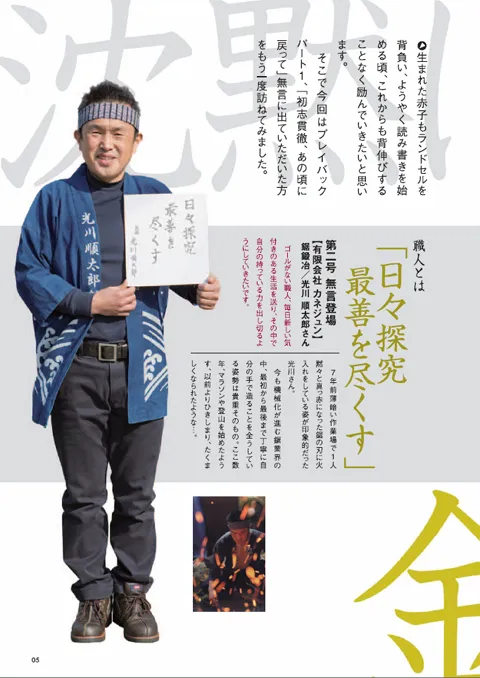 沈黙
生まれた赤子もランドセルを
背負い、ようやく読み書きを始
める頃、これからも背伸びする
ことなく励んでいきたいと思い
ます。
そこで今回はプレイバック
パート1、「初志貫徹、あの頃に
戻って」無言に出ていただいた方
をもう一度訪ねてみました。
職人とは
「日々探究
最善を尽くす」
第二号 無言登場
【有限会社 カネジュン】
鋸鍛冶/光川 順太郎さん
ゴールがない職人、毎日新しい気
付きのある生活を送り、その中で
自分の持っている力を出し切るよ
うにしていきたいです。
7年前薄暗い作業場で1人
黙々と真っ赤になった鋸の刃に火
入れをしている姿が印象的だった
光川さん。
今も機械化が進む鋸業界の
中、最初から最後まで丁寧に自
分の手で造ることを全うしてい
る姿勢は貴重そのもの。ここ数
年、マラソンや登山を始めたよう
で、以前よりひきしまり、たくま
しくなられたような…。
日々探究
最善を
尽くす
光川順太郎
光川順太郎
金
05